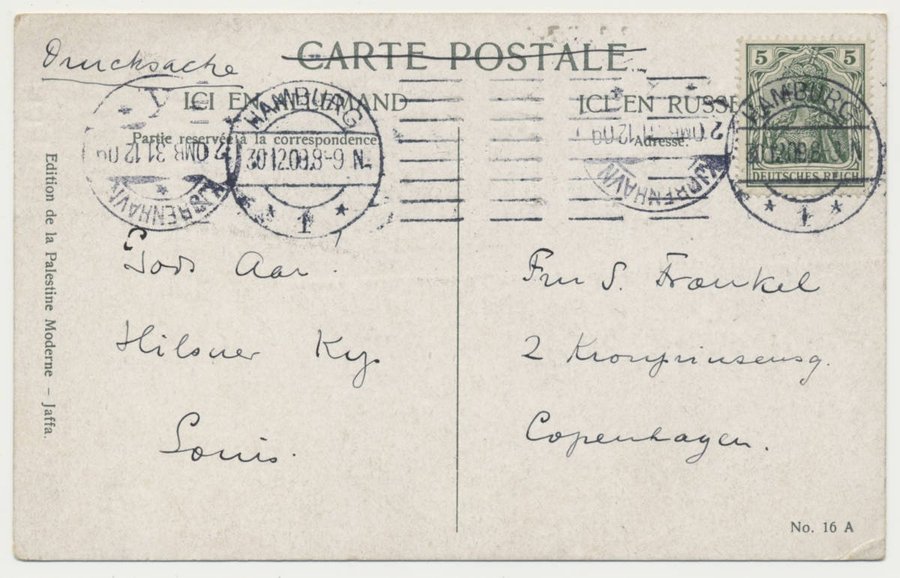 Drucksache
CARTE POSTALE
ICI EN ALLEMAND
ICI EN RUSSE
Partie reservée à la correspondence
Adresse.
HAMBURG
30.12.09.8-9 N.
* 1 *
KJØBENHAVN
31.12.09
2 OMB.
HAMBURG
30.12.09.8
N
* 1 *
KJØBENHAVN
2 OMB. 31.12.09
5 5
DEUTSCHES REICH
Edition de la Palestine Moderne – Jaffa.
Godt Aar.
Hilsner Kys
Louis.
Fru S. Fraenkel
2 Kronprinsensg.
Copenhagen.
No. 16 A